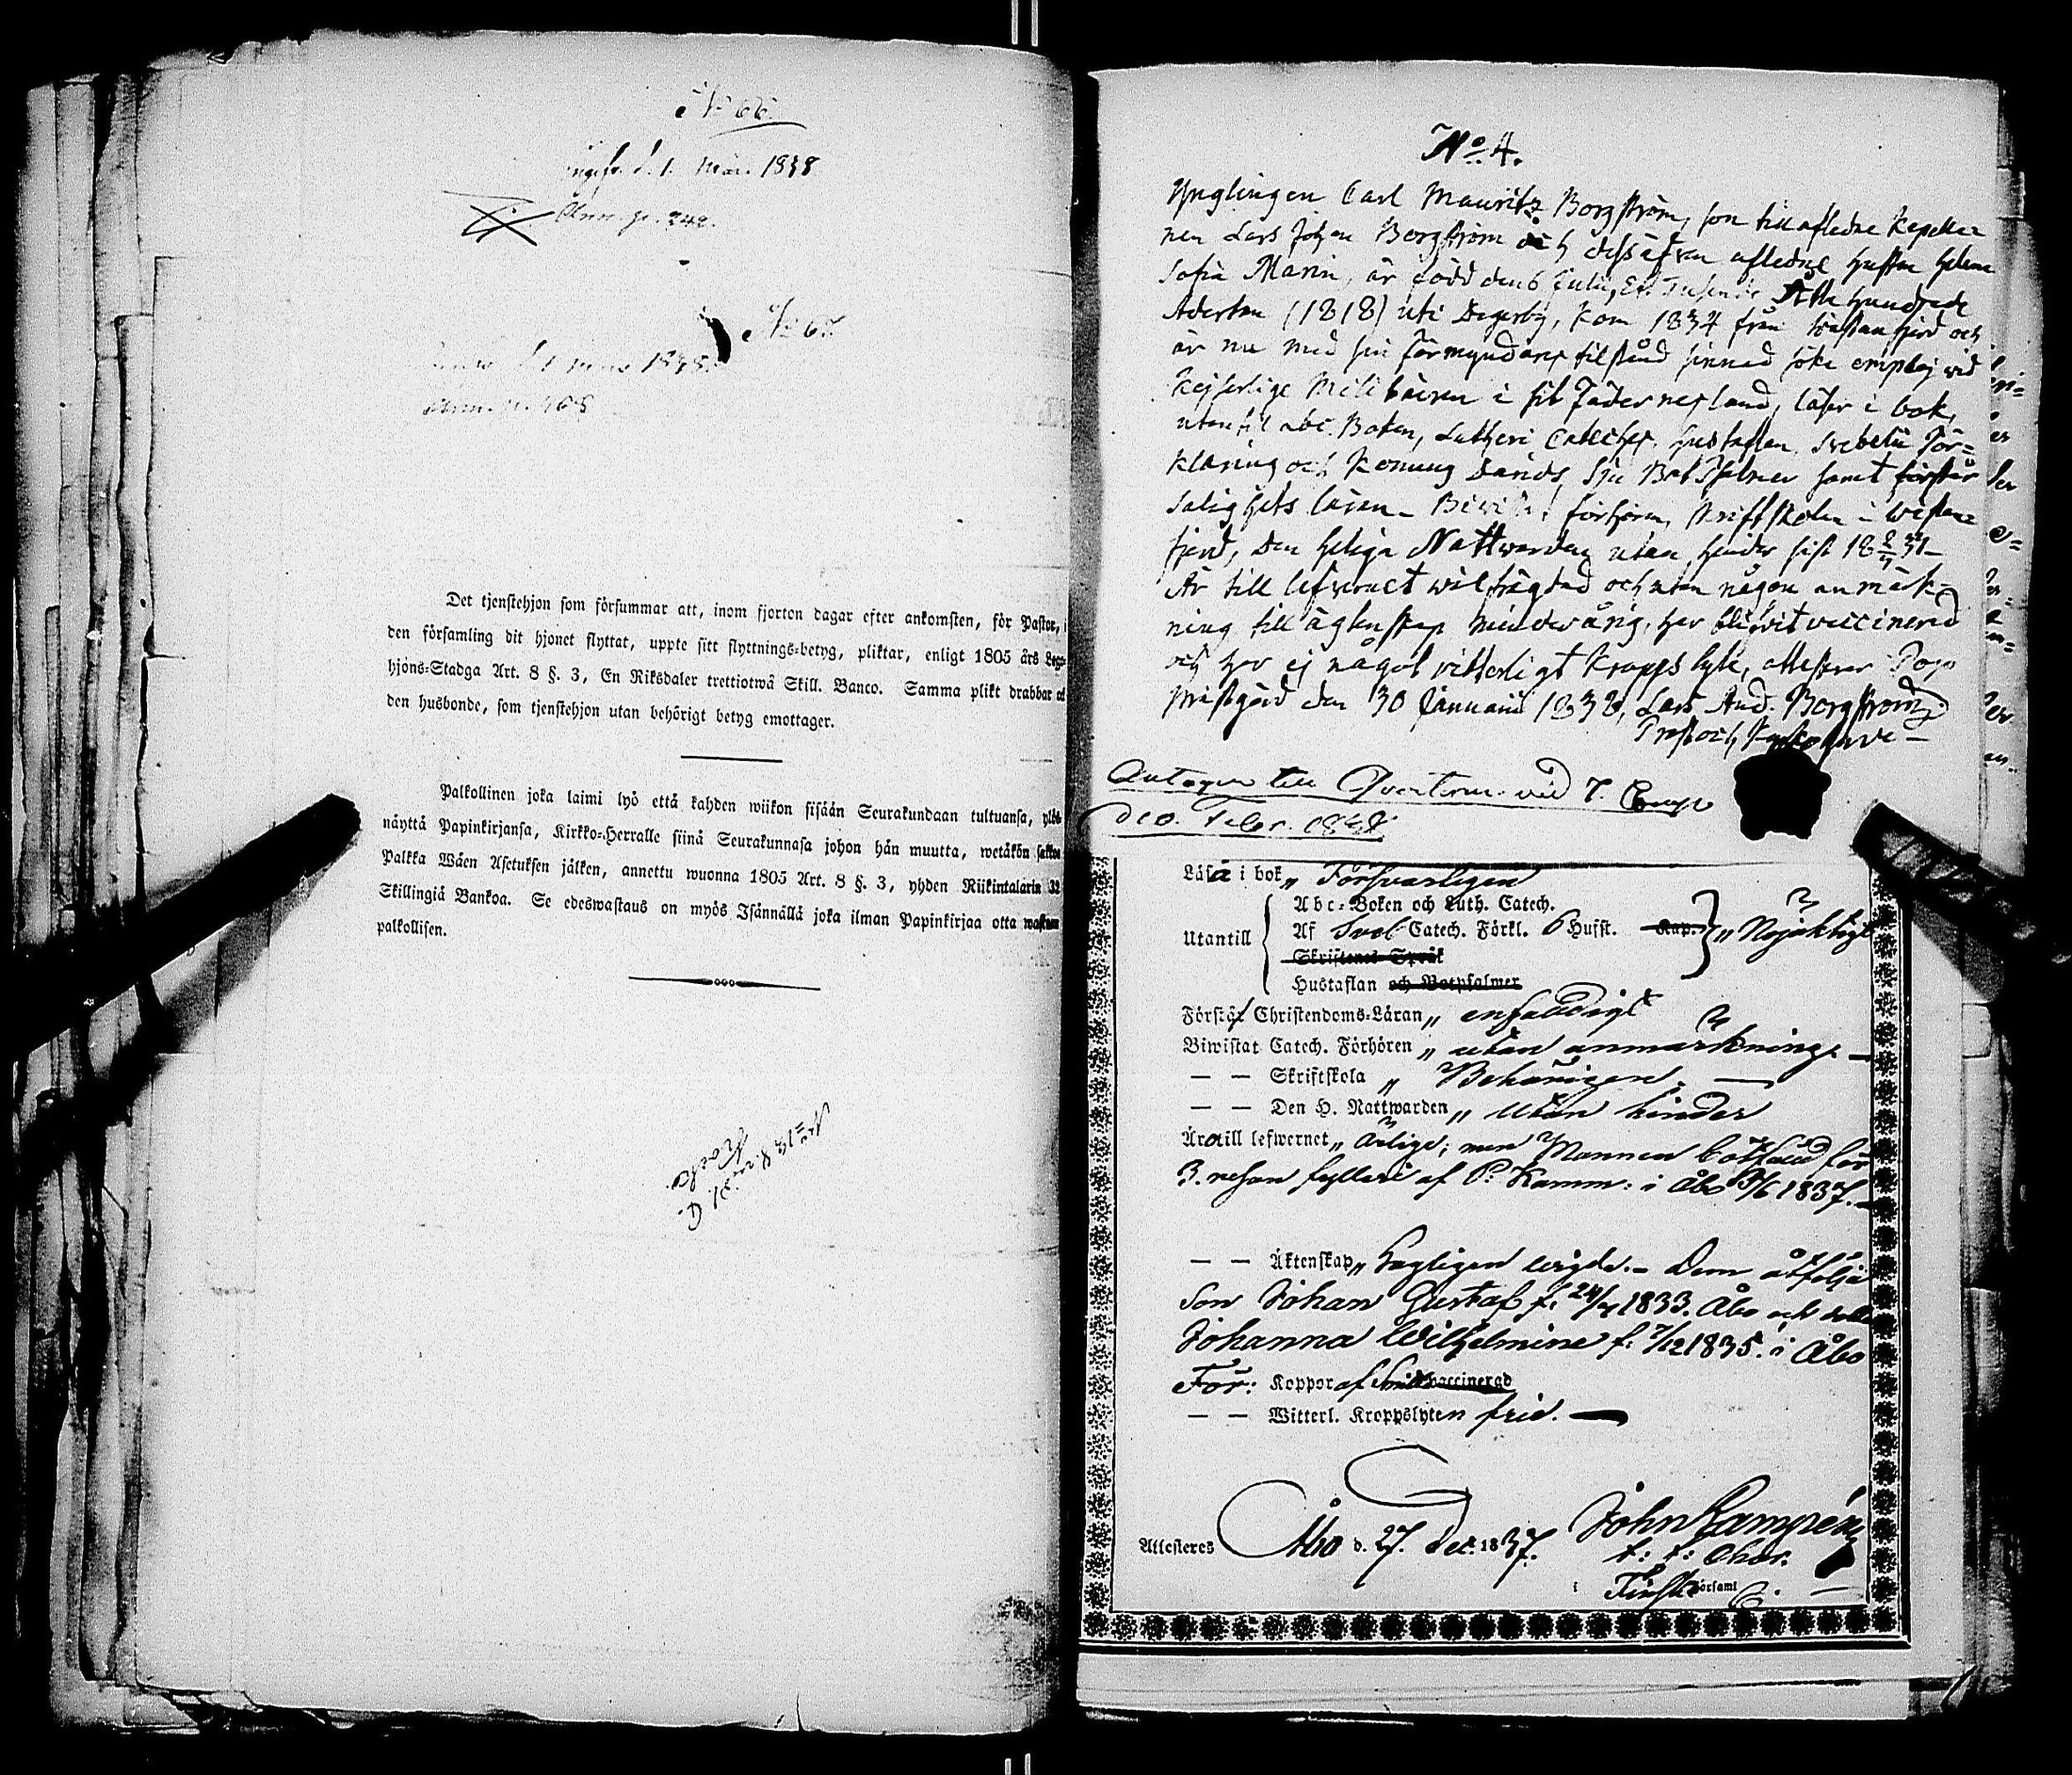 No 66.
d. 1. Mars 1838
Ann. p. 242.
No 67.
d. 1 Mars 1838.
Det tjenstehjon som försummar att, inom fjorton dagar efter ankomsten, för Pastor, i
den församling dit hjonet flyttat, uppte sitt flyttnings-betyg, pliktar, enligt 1805 års Lego-
hjons-Stadga Art. 8 §. 3, En Riksdaler trettiotwå Skill. Banco. Samma plikt drabbar ock
den husbonde, som tjenstehjon utan behörigt betyg emottager.
Palkollinen joka laimi lyö että kahden wiikon sisään Seurakundaan tultuansa, ylös
näyttä Papinkirjansa, Kirkko-Herralle siinä Seurakunnasa johon hän muutta, wetäkön sakkoa
Palkka Wäen Asetuksen jälken, annettu wuonna 1805 Art. 8 §. 3, yhden Riikintalarin 32
Skillingiä Bankoa. Se edeswastaus on myös Isännällä joka ilman Papinkirjaa otta wastaan
palkollisen.
No 4.
Ynglingen Carl Mauritz Borgström, son till afledne Kapella-
nen Lars Johan Borgström och dess äfven afledne hustru Helena
Sofia Marin, är född den 6 Julii, Ett Tusende Åtta hundrade
Aderton (1818) uti Degerby, kom 1834 från Westanfjerd och
är nu med sin förmyndares tilstånd sinnad söka emploj vid
Kejserliga Militairen i sit Fädernesland, läser i bok,
utantil abc Boken, Lutheri Catechес, Hustaflan, Svebelii För-
klaring och Konung Davids Sju Bot Psalmer samt förstår
Salighets läran. Bivistat förhören, Skriftskolan i Westan-
fjerd, Den heliga Nattwarden utan hinder sist
Är till lefvernet wälfrägdad och utan någon anmärk-
ning till ägtenskap minderårig, har blifvit vaccinerad
och har ej något vitterligt kroppslyte, attesterar
Prestgård den 30 Januarii 1838, Lars And. Borgström.
Prost och Kyrkoherde
Antagen till Qvarterm. vid 7. Comp.
d. 10. Febr. 1838.
Läsa i bok „ Försvarligen
Abc-Boken och Luth. Catech.
Utantill Af Sveb Catech. Förkl. 6 Hufst. Kap. „ Nöjaktigt
Skriftenes Språk
Hustaflan och Botpsalmer
Förstå Christendoms-Läran „ enfaldigt
Biwistat Catech. Förhören „ utan anmärkning. —
— — Skriftskola „ Behörigen. —
— — Den H. Nattwarden „ utan hinder
Äro till lefwernet „ ärlige; men Mannen bötfäld för
3. resan fylleri af P. Kamm: i Åbo 3/6 1837. —
— — Äktenskap „ Lagligen wigde. — Dem åtfölja
Son Johan Gustaf f. 24/4 1833. Åbo och dotter
Johanna Wilhelmina f. 7/12 1835. i Åbo
För: Koppor af Smitta vaccinerad
— — Witterl. Kroppslyten frie. —
Attesteres Åbo d. 27. Dec. 1837. John Lampén
t: f:
i Finska Församl